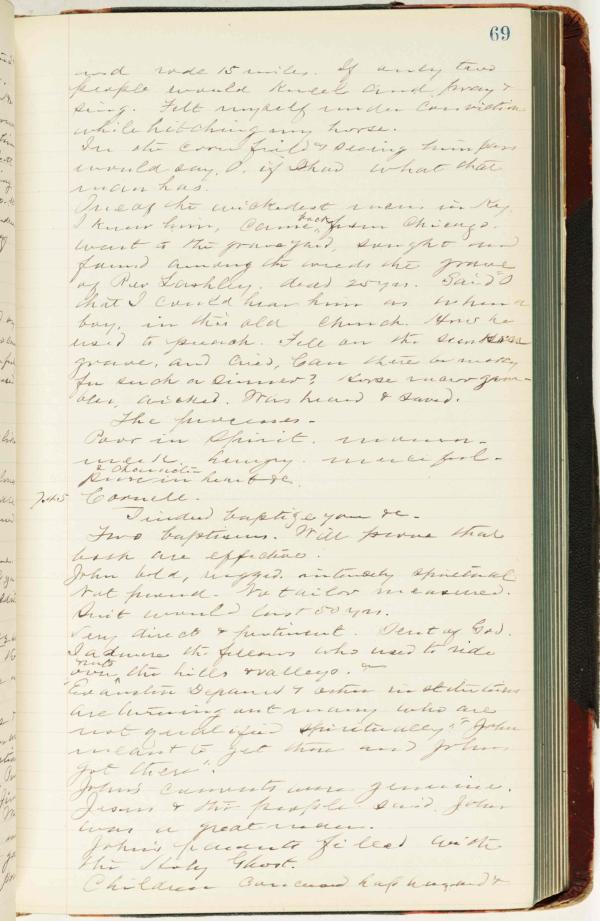 69
and rode 15 miles. If only two
people would kneel and pray &
sing. Felt myself under conviction
while hitching my horse.
In the cornfield & seeing him pass
would say, O, if I had what that
man has.
One of the wickedest men in Ky.
I knew him, came back from Chicago.
went to the graveyard, sought and
found among the weeds the grave
of Rev Lashley, dead 25 yrs. Said "O
that I could hear him as when a
boy, in this old church. How he
used to preach. Fell on the sunken
grave, and cried, Can there be mercy
for such a sinner? Horse man gam-
bler, wicked. Was heard & saved.
The processes -
Poor in Spirit. mourn -
meek, hungry. merciful -
Character
pure in heart &c.
Cornell.
I indeed baptize you &c -
Two baptisms. Will prove that
both are effective.
John bold, rugged, intensely spiritual
Not proud. No tailor measured.
Suit would last 50 yrs.
Very direct & pertinent. Sent of God.
I admire the fellows who used to ride
over the hills & valleys.
"Evanston Depauw & other institutions
are turning out many who are
not qualified spiritually." "John
meant to get there and John
got there".
John's converts were genuine.
Jesus & the people said John
was a great man.
John's parents filled with
the Holy Ghost.
Children conceived haphazard &